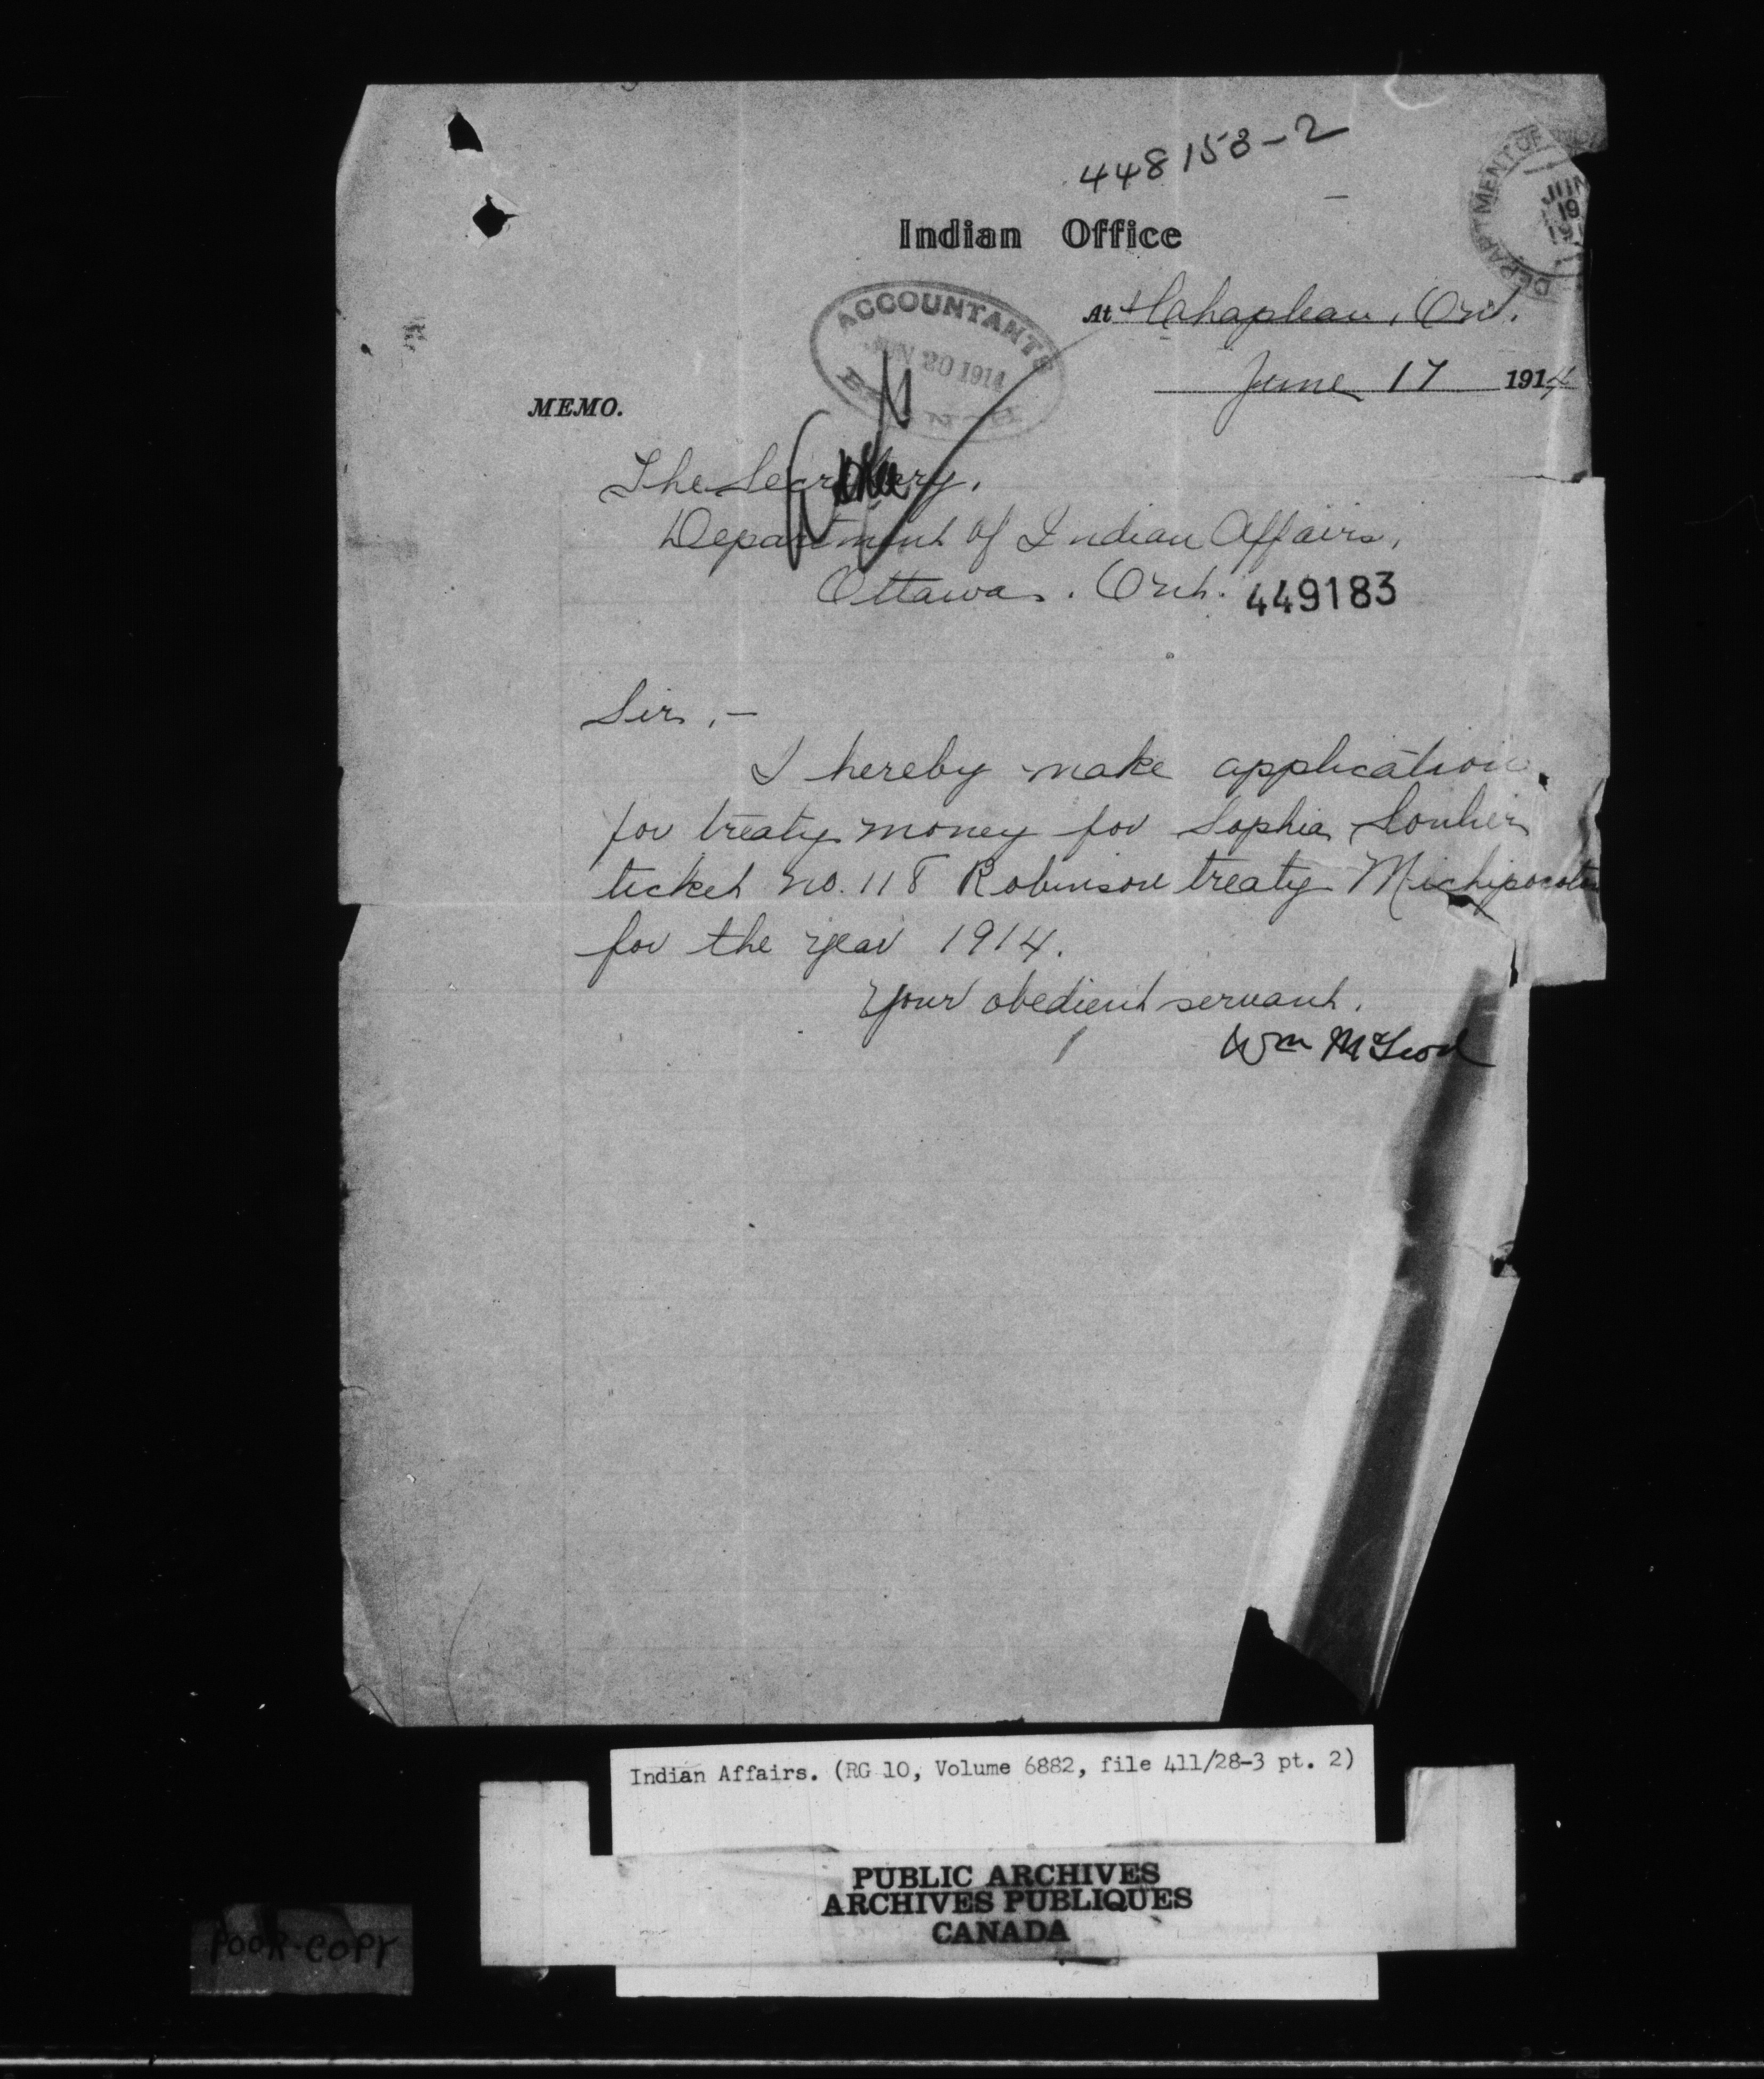 448153-2
Indian Office
DEPARTMENT OF
JUN
19
ACCOUNTANTS
20 1914
At Chapleau, Ont.
June 17 1914
MEMO.
The Secretary,
Department of Indian Affairs,
Ottawa. Ont. 449183
Sir,-
I hereby make application
for treaty money for Sophia
ticket no. 118 Robinson treaty Michipocoten
for the year 1914.
Your obedient servant.
Wm McLeod
Indian Affairs. (RG 10, Volume 6882, file 411/28-3 pt. 2)
PUBLIC ARCHIVES
ARCHIVES PUBLIQUES
CANADA
POOR COPY